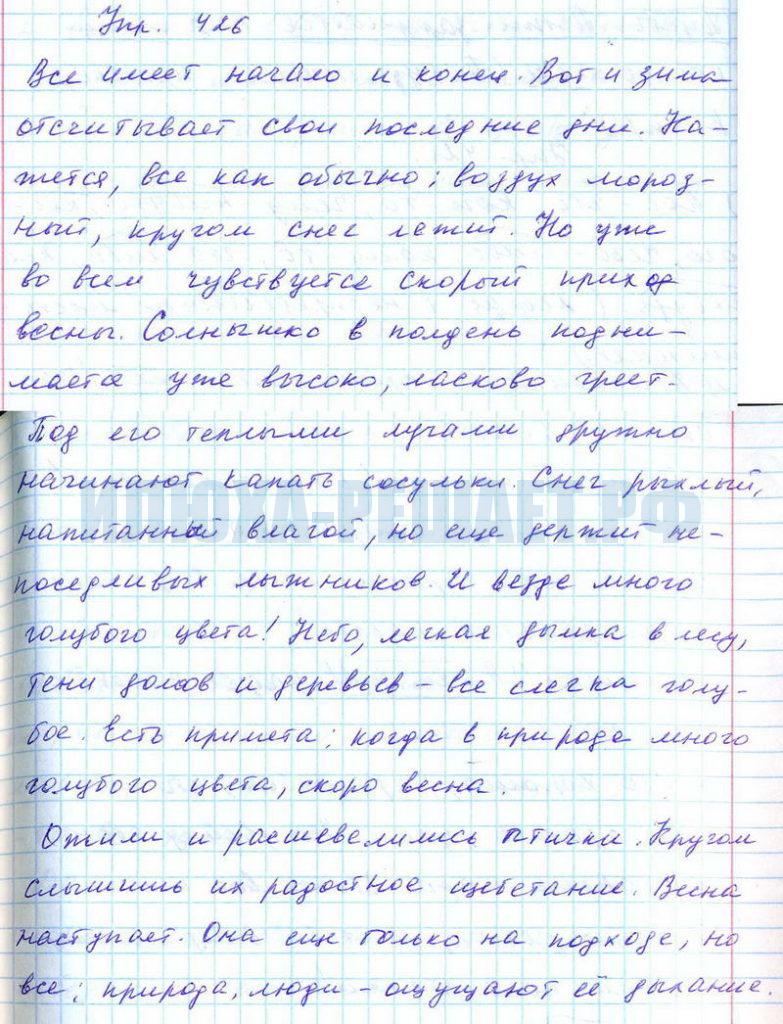 Упр. 426
Все имеет начало и конец. Вот и зима
отсчитывает свои последние дни. Ка-
жется, все как обычно: воздух мороз-
ный, кругом снег лежит. Но уже
во всем чувствуется скорый приход
весны. Солнышко в полдень подни-
мается уже высоко, ласково греет.
Под его теплыми лучами дружно
начинают капать сосульки. Снег рыхлый,
напитанный влагой, но еще держит не-
поседливых лыжников. И везде много
голубого цвета! Небо, легкая дымка в лесу,
тени домов и деревьев – все слегка голу-
бое. Есть примета: когда в природе много
голубого цвета, скоро весна.
Ожили и расшевелились птички. Кругом
слышишь их радостное щебетание. Весна
наступает. Она еще только на подходе, но
все: природа, люди – ощущают её дыхание.
ИПОХА-РЕШАЕТ.РФ